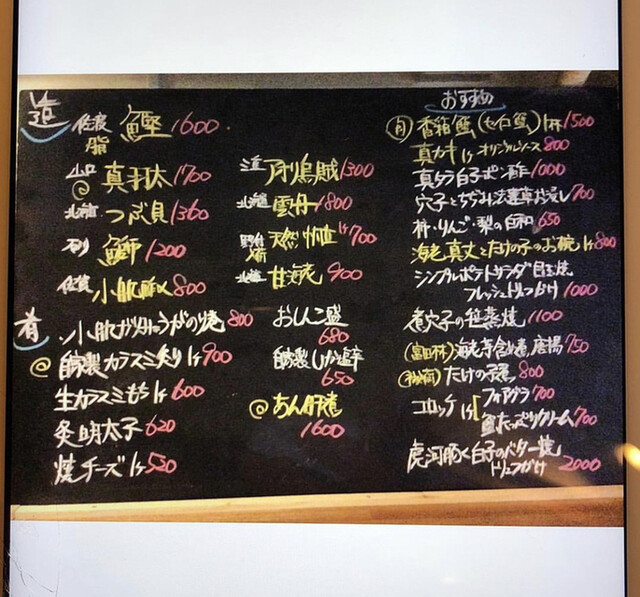 造
佐賀 鰹 1600
脂
山口 真羽太 1700
北海道 つぶ貝 1360
石川 鰤 1200
佐賀 小肌 酢〆 800
アオリ烏賊 1300
北海道 雲丹 1800
天然帆立 1ケ 700
北海道 甘海老 900
肴
小肌ガリみょうがのり焼 800
自家製カラスミ炙り 1ケ 900
生カラスミもち 1ケ 600
炙明太子 620
焼チーズ 1ケ 520
おしんこ盛
680
自家製しお辛
650
あん肝煮
1600
おすすめ
香箱蟹(せいこ蟹) 1杯 1500
真カキ 1ケ オリジナルソース 800
真タラ白子ポン酢 1000
穴子とちぢみ法蓮草お浸し 700
柿・りんご・梨の白和 650
海老真丈とたけの子のお椀 1ケ 800
シンプルポテトサラダ 目玉焼
フレッシュトリュフがけ 1000
煮穴子の笹葉焼 1100
(富田林) 海老芋含め煮 唐揚 750
たけの子煮 800
コロッケ 1ケ フォアグラ 700
蟹たっぷりクリーム 700
虎河豚白子のバター焼
トリュフがけ 2000